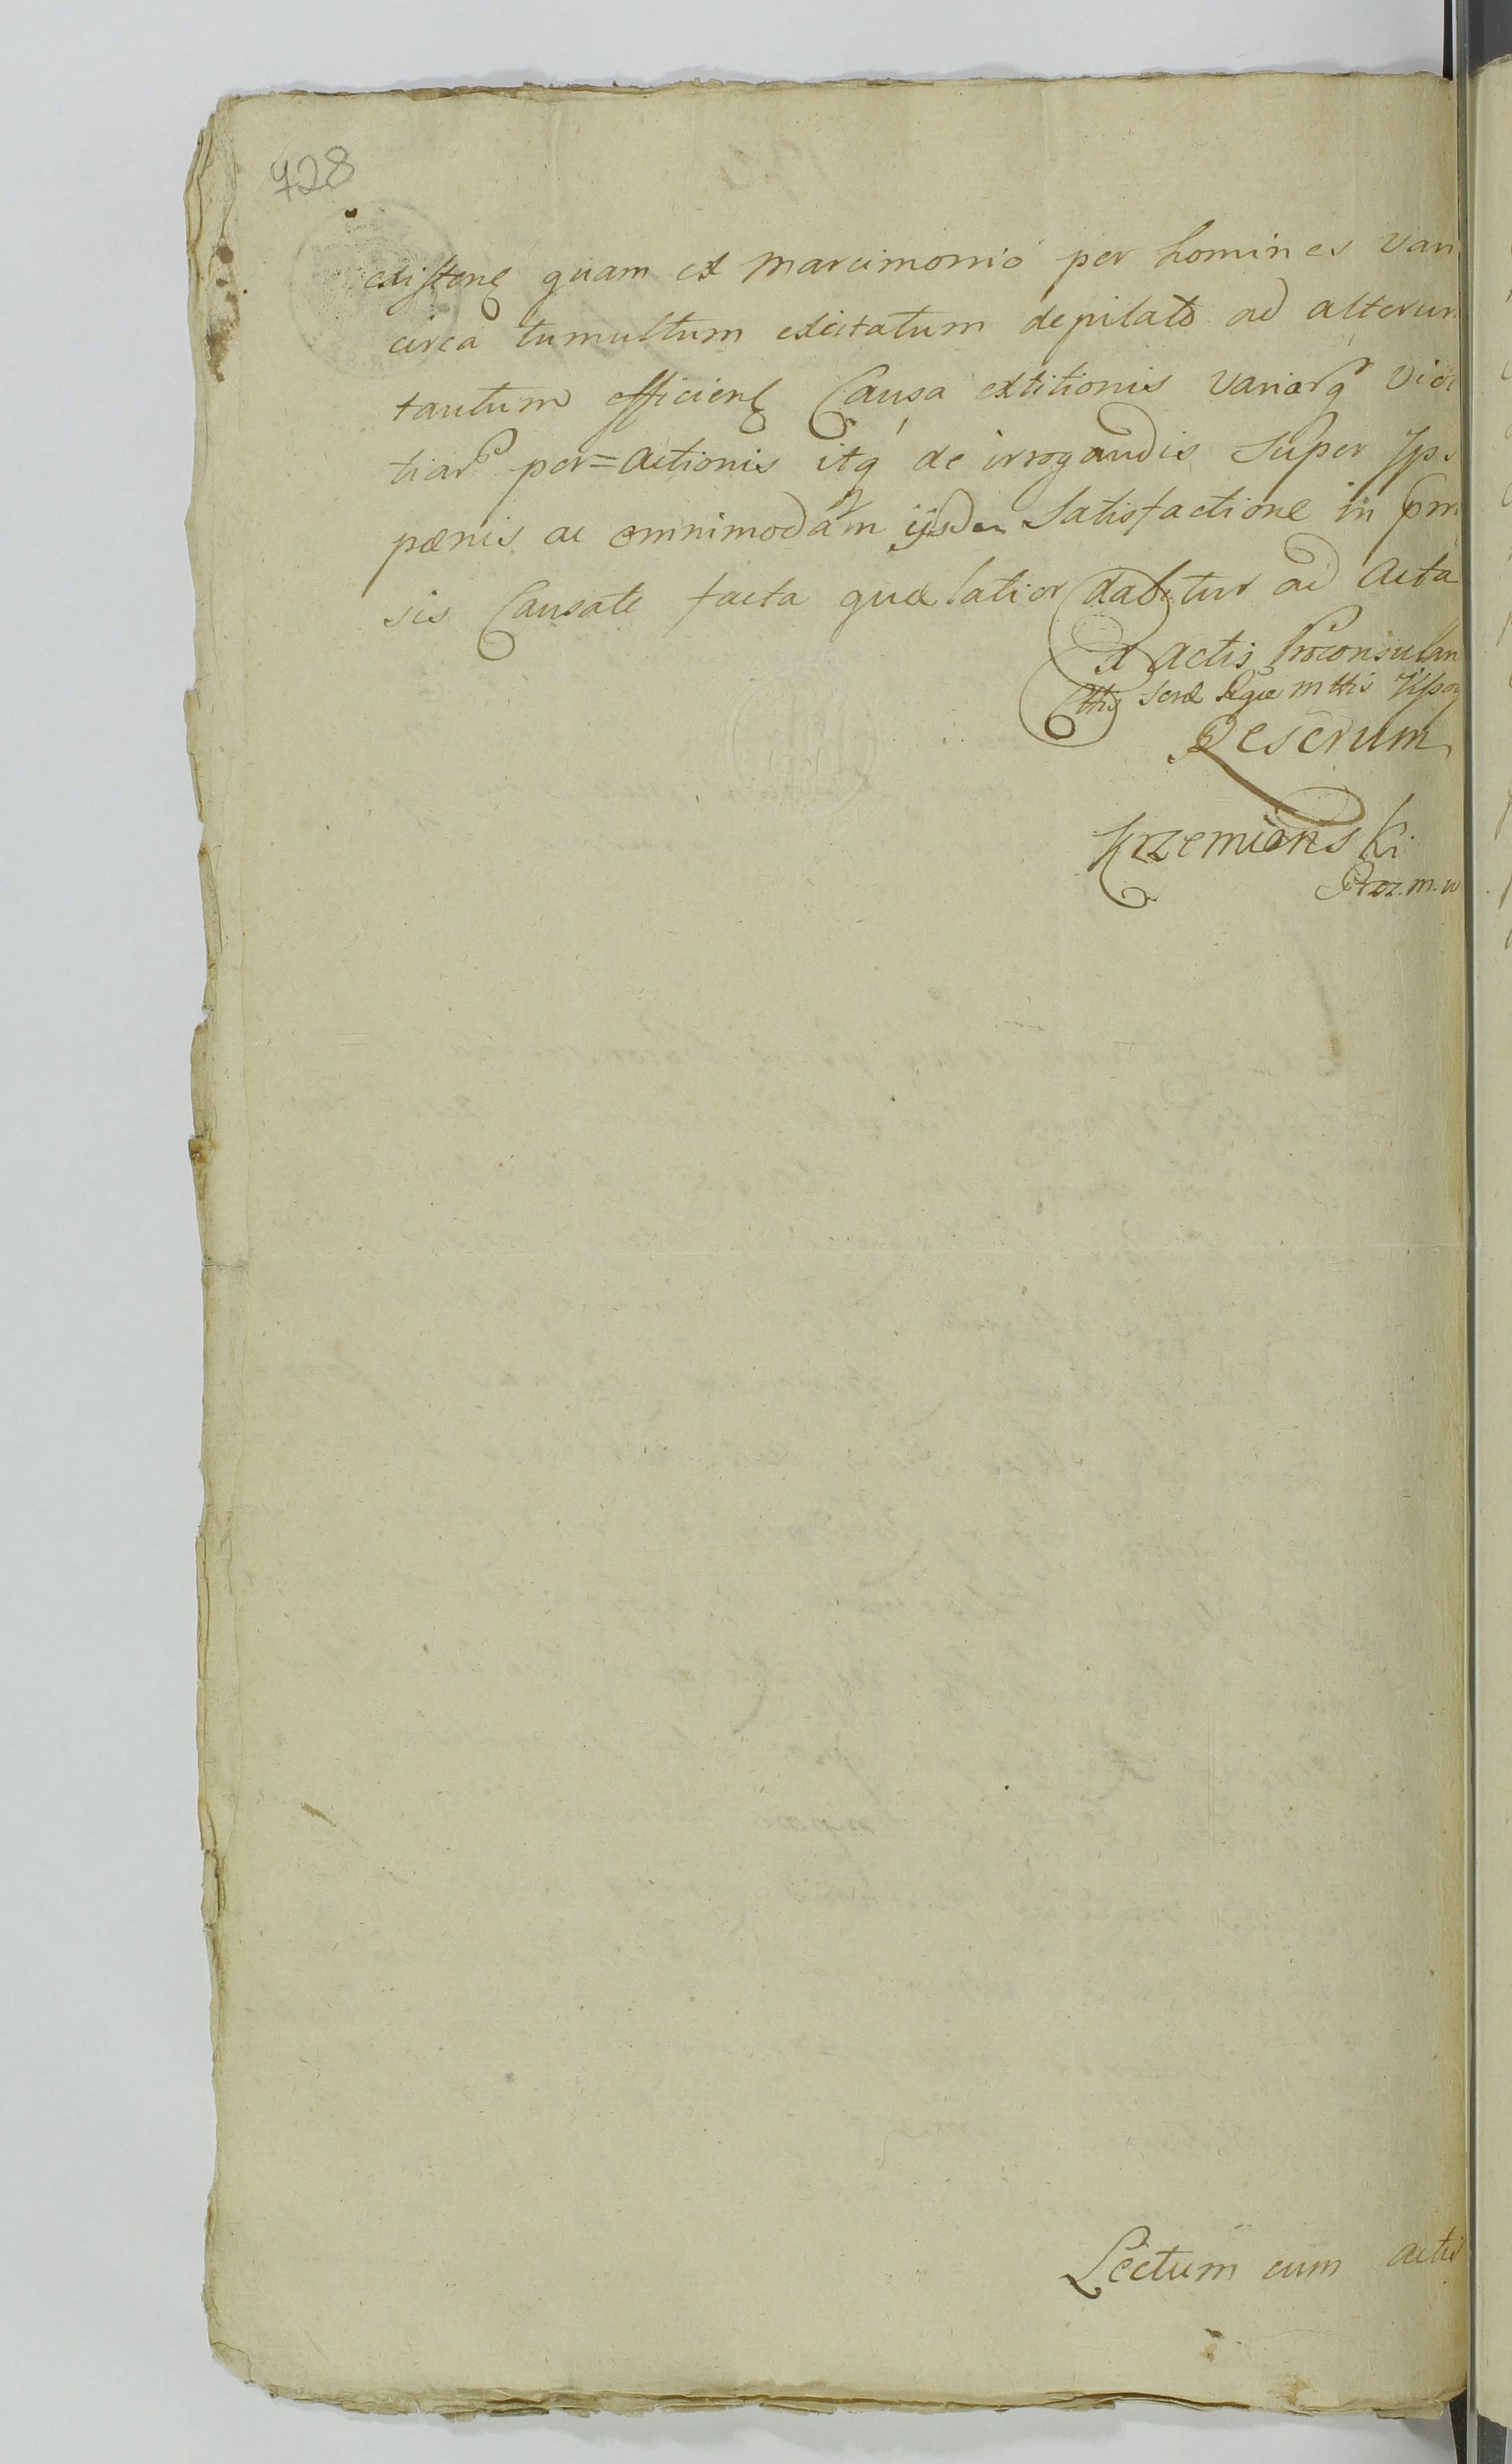 728
existen quam ex Marcimonio per homines van
circa tumultum excitatum depilato ad alterum
tantum efficien Causa extitionis variarq viol
tiar per=actionis itq de irrogandis super Ips
pænis ac omnimoda in ijsdem Satisfactione in pm
sis Causate facta quæ latior dabitur ad Acta
ex Actis Proconsulan
Resčrum
Krzemienski
Lectum cum actis